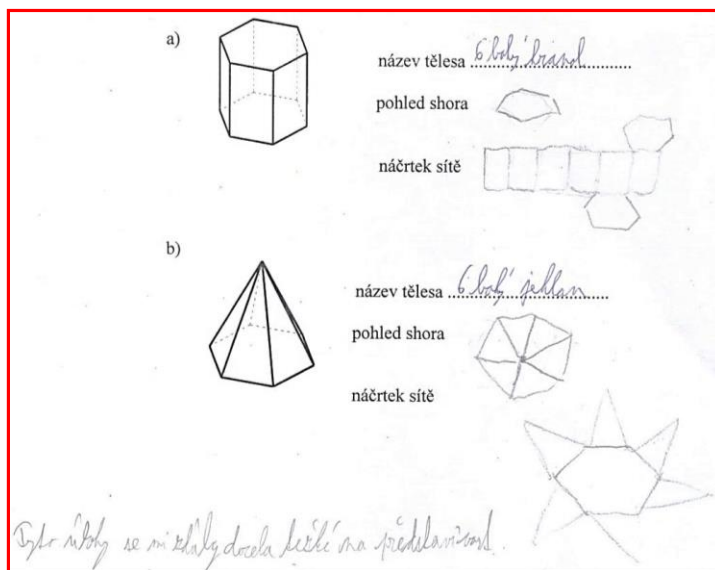 a)
název tělesa 6 boký hranol
pohled shora
náčrtek sítě
b)
název tělesa 6 boký jehlan
pohled shora
náčrtek sítě
Tyto úlohy se mi zdály docela těžké na představivost.